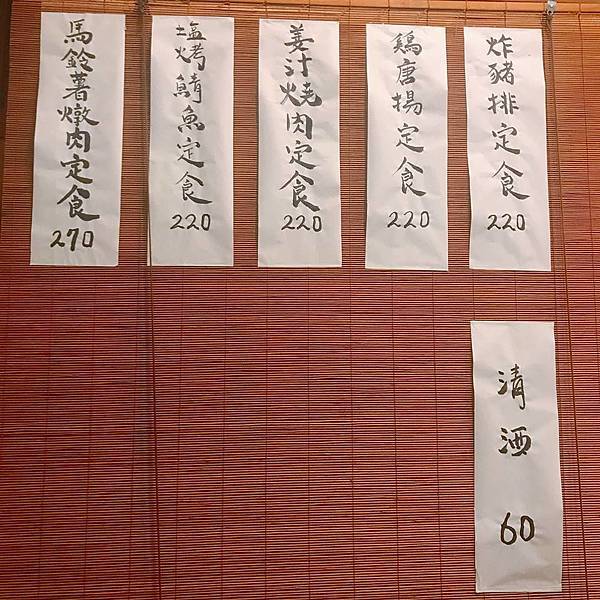 炸豬排定食
220
鶏唐揚定食
220
姜汁燒肉定食
220
塩烤鯖魚定食
220
馬鈴薯燉肉定食
270
清酒
60